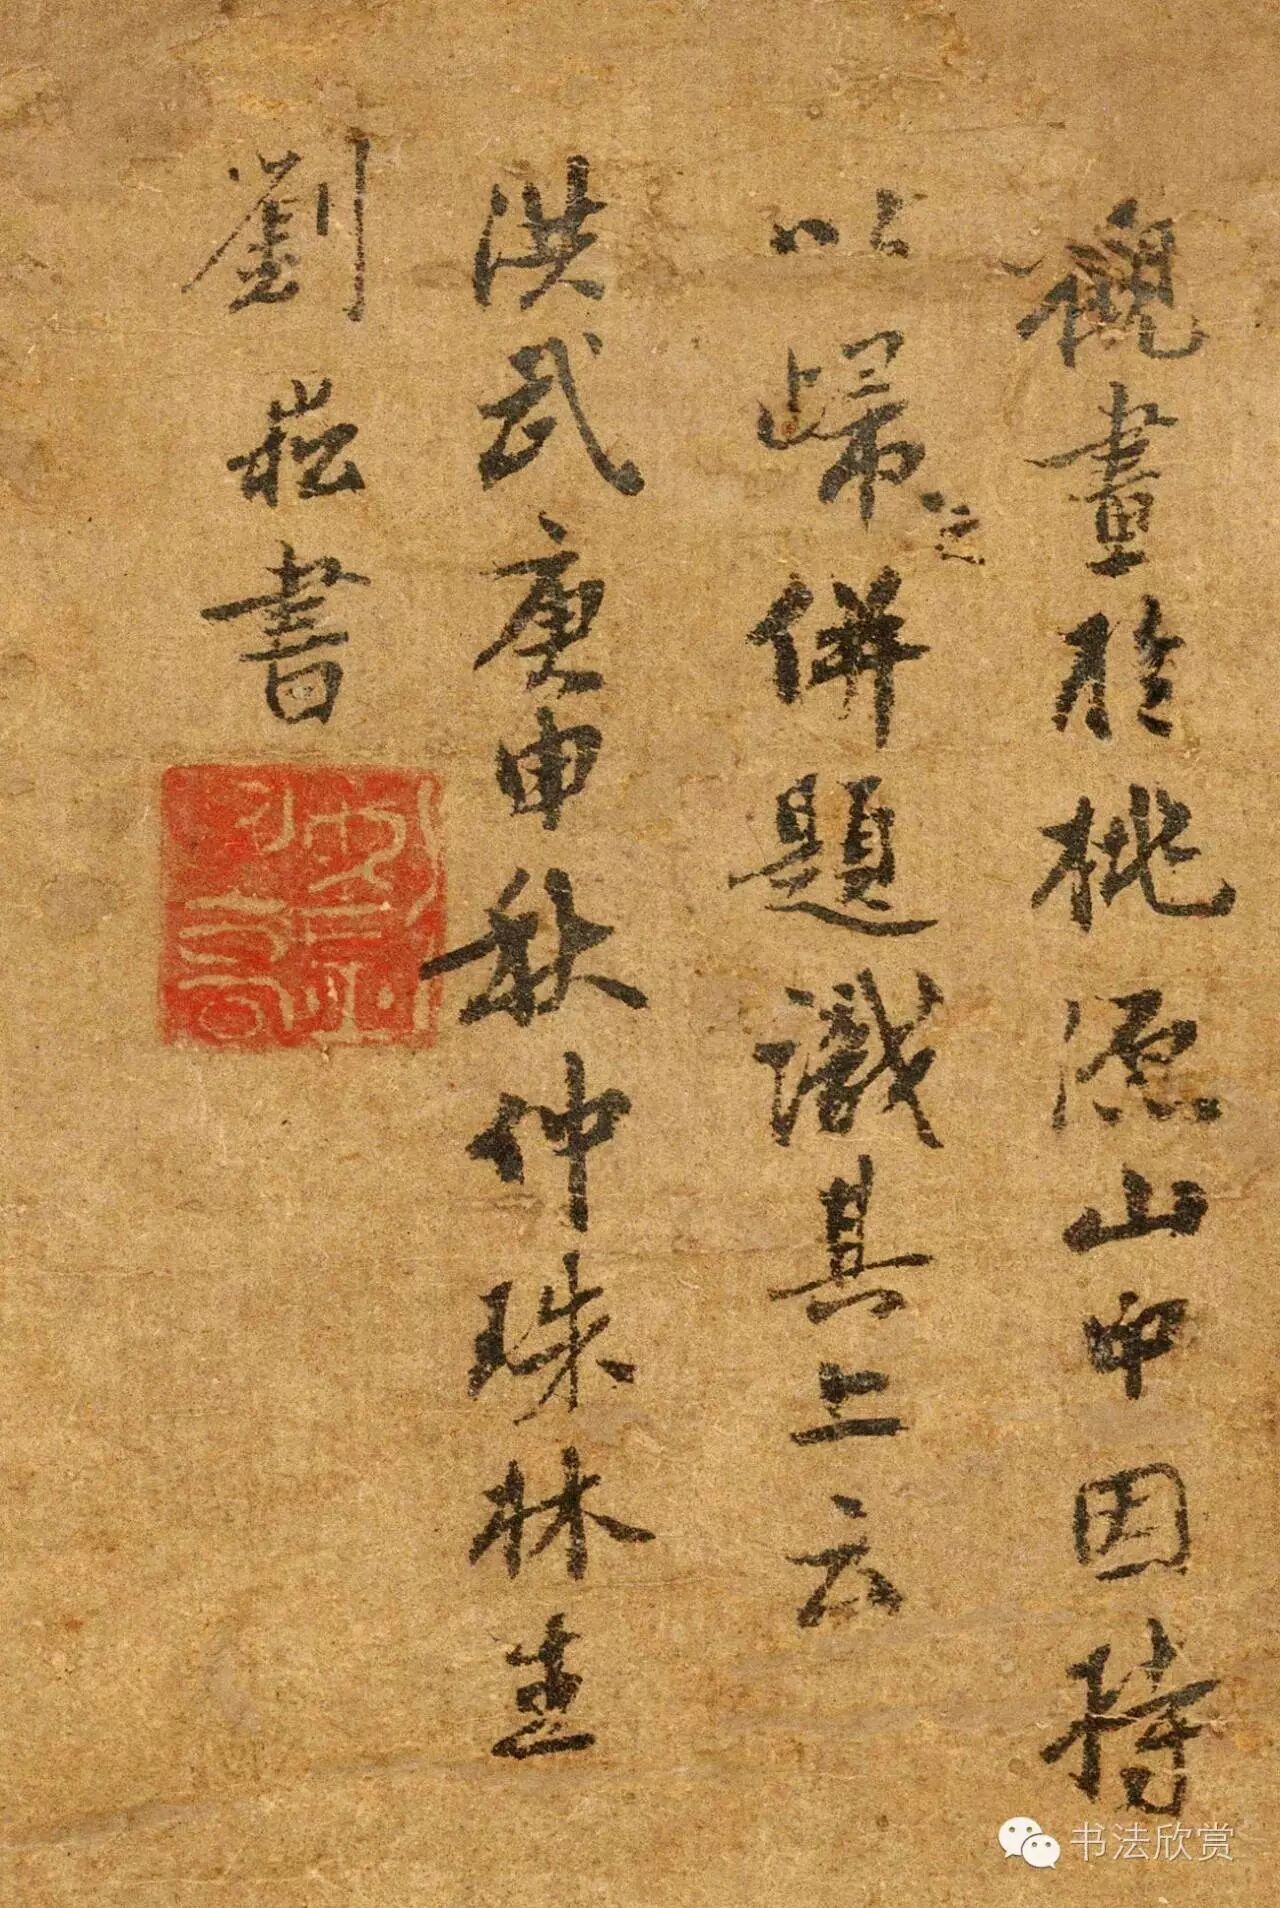 觀畫於桃源山中因持
以歸之併題識其上云
洪武庚申秋仲珠林生
劉崧書
书法欣赏